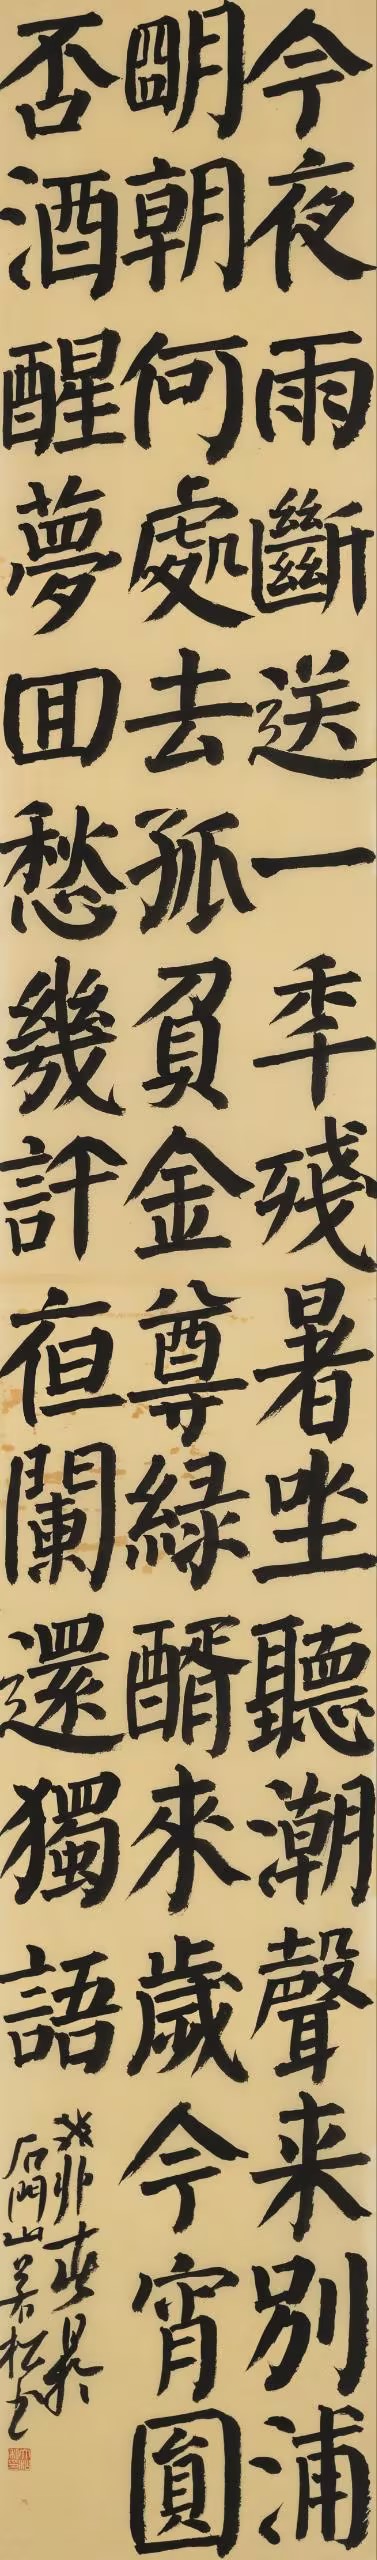 今夜雨斷送一季殘暑坐聽潮聲来別浦
明朝何處去孤負金尊緑醑來歲今宵圓
否酒醒夢回愁幾許夜闌還獨語
癸卯春暮
石門山若松书